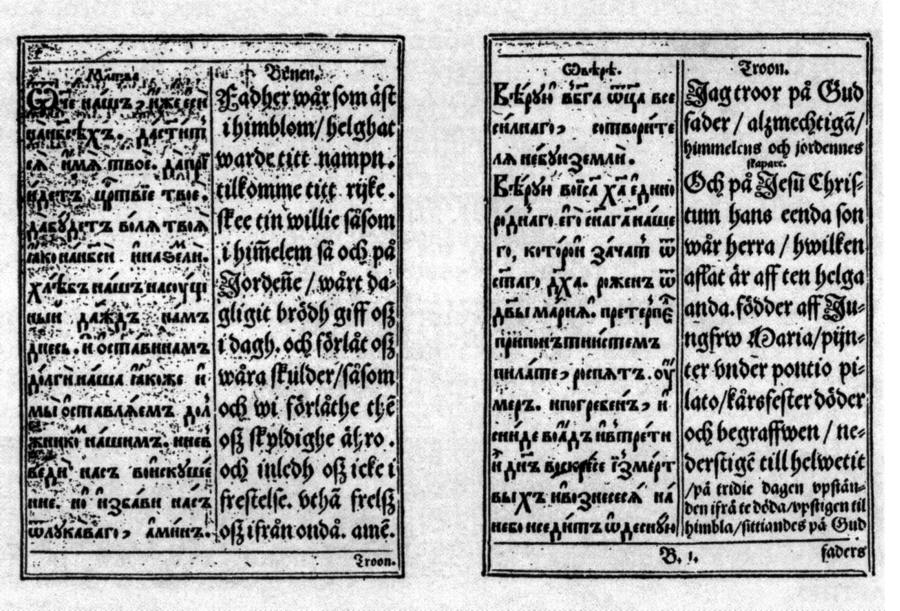 Млтва
Ѿче нашъ, иже еси
нанбсѣхъ. даститъ
сѧ имѧ твое. дапрї
идетъ црⷭтвїе твое.
дабудетъ волѧ твоѧ
ꙗко нанбсѝ иназемлѝ.
хлѣбъ нашъ насущ
ныи даждъ намъ
днесь. и оставинамъ
долги наша ꙗкоже и
мы оставлѧемъ дол
жнико нашимъ. инев
веди насъ воискуше
ние. но избави насъ
ѿлукаваго, аминъ.
Bönen.
Fadher wår som äst
i himblom/ helghat
warde titt nampn.
tilkomme titt rijke.
skee tin willie såsom
i him̃elem så och på
Jordeñe / wårt da-
gligit brödh giff oß
i dagh. och förlåt oß
wåra skulder/såsom
och wi förlåthe thē
oß skyldighe äh̃ro.
och inledh oß icke i
frestelse. vthā frelß
oß ifrån ondå. amē.
Troon.
Ѡвѣрѣ.
Вѣрую вбга ѿца все
силнаго, сотворите
лѧ небу и землѝ.
Вѣрую воіса ха едино
роднаго его сна гд҃а наше
го, которои зачатъ ѿ
ст҃аго дх҃а. роженъ ѿ
дв҃ы мариѧ. претерпе
припонътиистемъ
пилате, роспѧтъ. оу
меръ. ипогребенъ, и
сниде воадъ ивтрети
и днъ вокресе їзмерт
выхъ ивознесесѧ на
небо иседитъ ѿдесную
Troon.
Jag troor på Gud
fader / alzmechtigā/
himmelens och jordennes
skapare.
Och på Jesū Chris-
tum hans eenda son
wår herra / hwilken
aflat är aff ten helga
anda. födder aff Ju-
ngfrw Maria/pijn-
ter vnder pontio pi-
lato/kårsfester döder
och begraffwen / ne-
derstigē till helwetit
/på tridie dagen vpstān-
den ifrå te döda/vpstigen til
himbla/sittiandes på Gud
B. 1.
faders